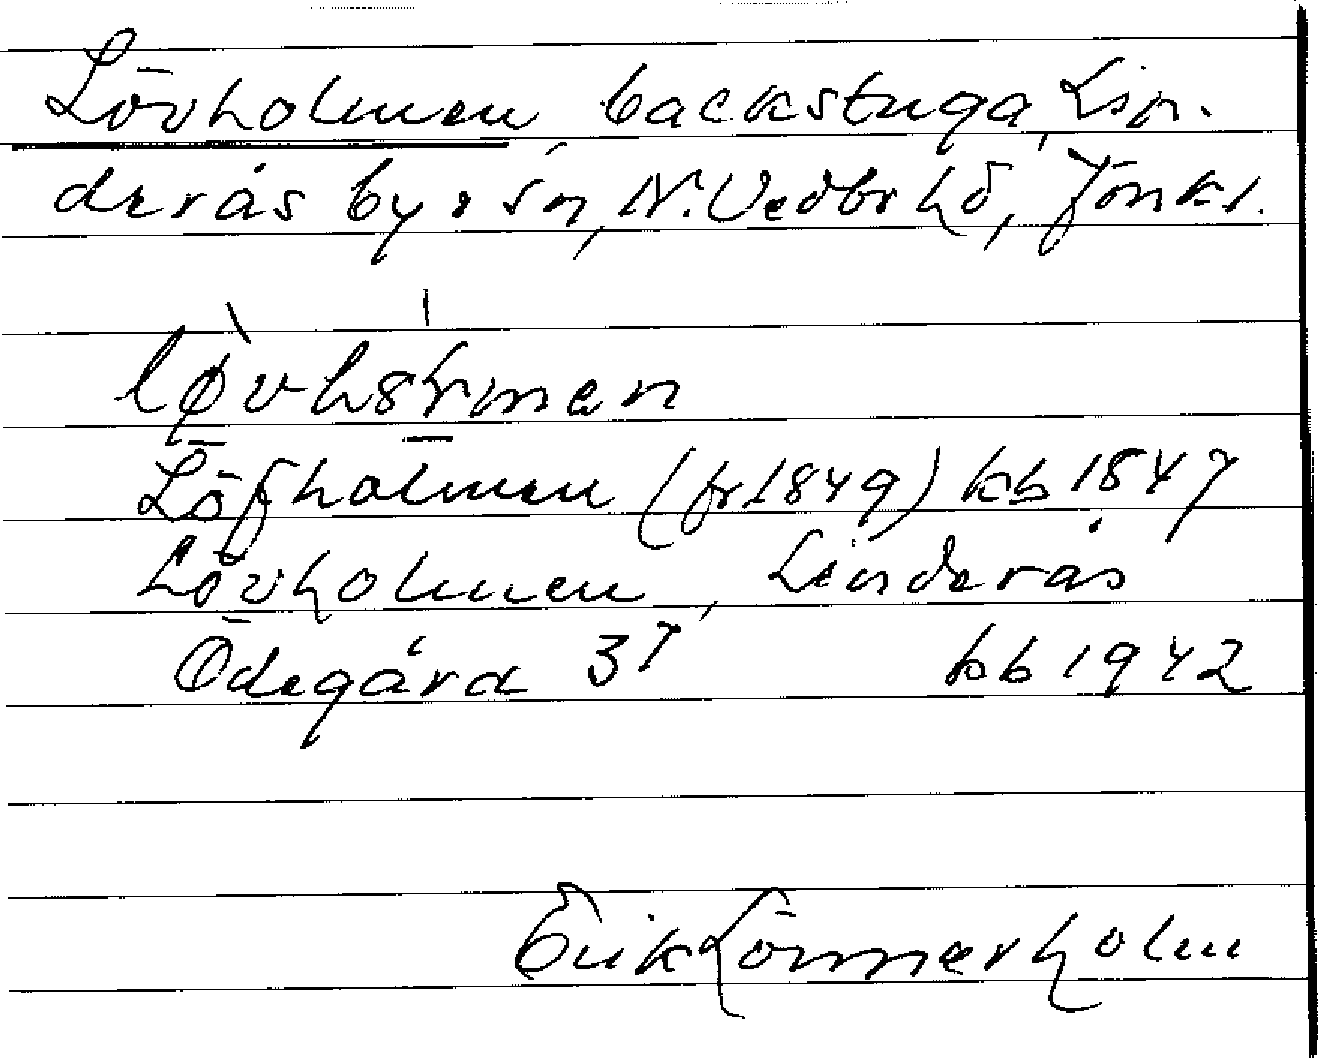 Lövholmen, backstuga, Lin-
derås by o sn, N. Vedbo hd, Jönk l.
lø̀vhɜ́lmen
Löfholmen (fr 1849) kb 1847
Lövholmen, Linderås
Ödegård 3⁷ kb 1942
Erik Lönnerholm